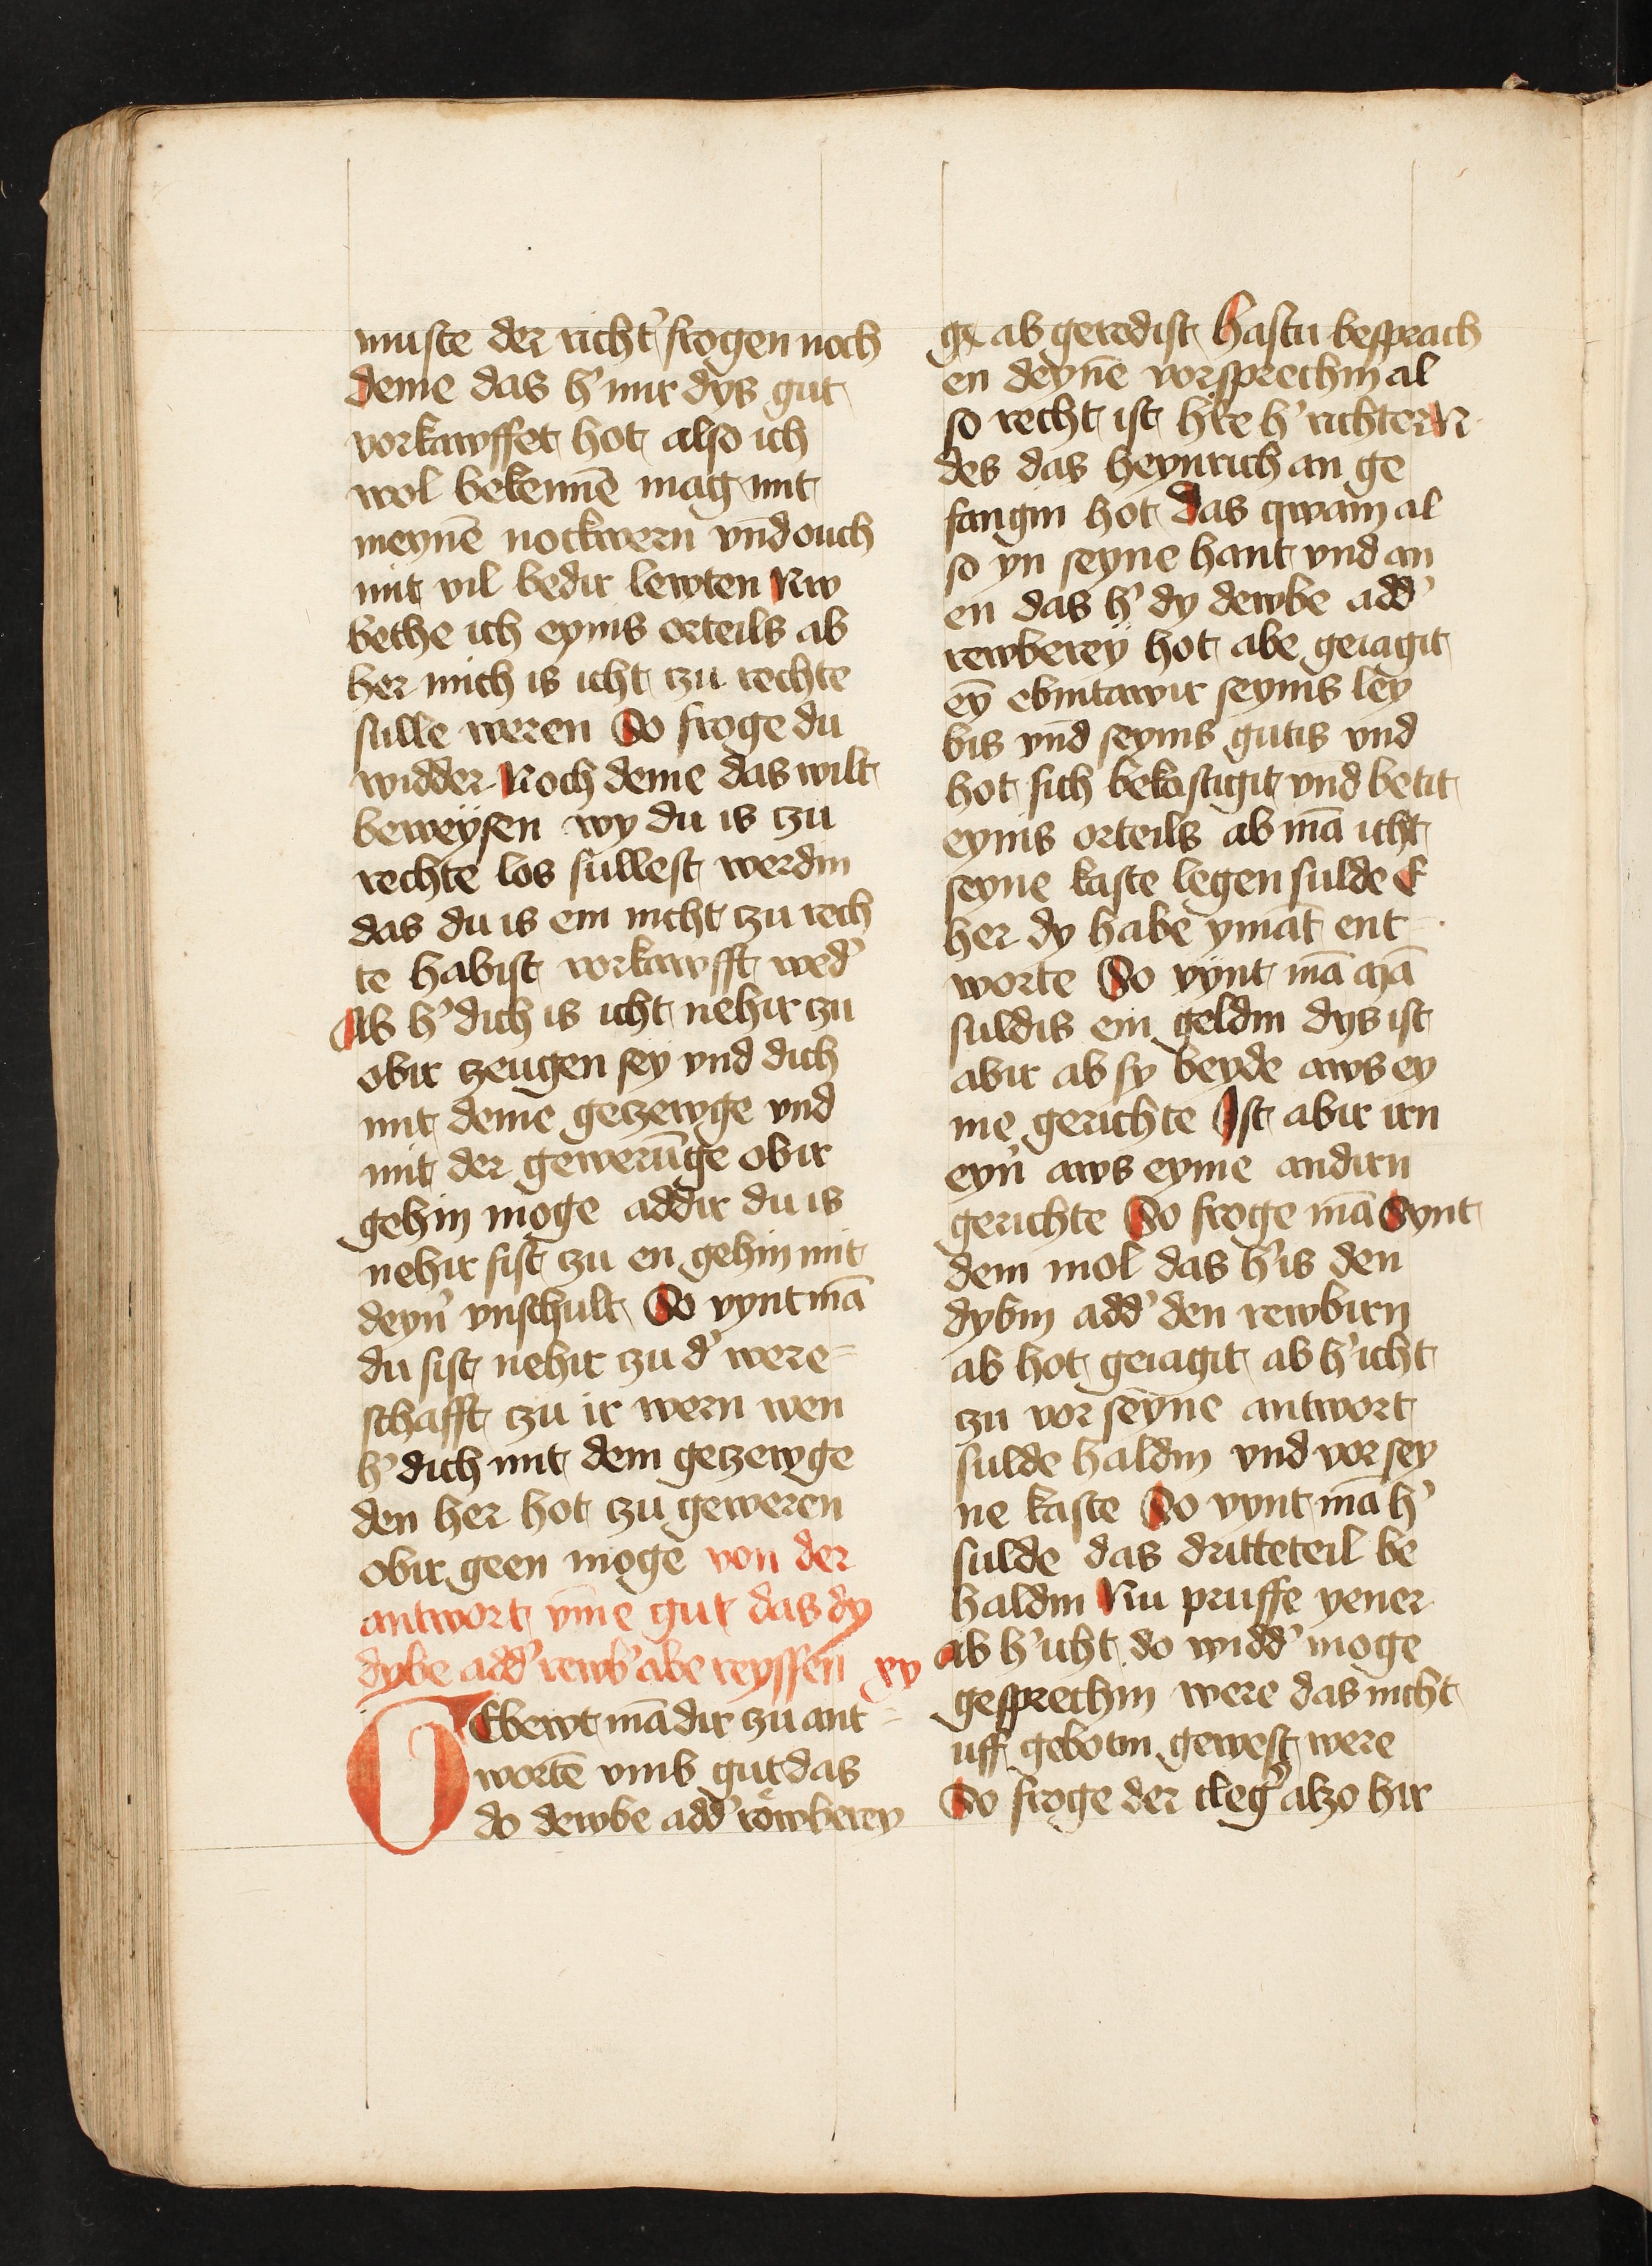 muste der richt' frogen noch
deme das h' mir dys gut
vorkawffet hot also ich
wol bekennē mag mit
meynē nockwern vnd ouch
mit vil bedir lewten Nw
bethe ich eynis orteils ab
her mich is icht zu rechte
sulle weren So froge du
widder Noch deme das wilt
beweysen wy du is zu
rechte los sullest werdin
das du is em nicht zu rech
te habist vorkawfft wed'
Ab h' dich is icht nehir zu
obir zeugen sey vnd dich
mit deme geczewge vnd
mit der gewerūge obir
gehin moge addir du is
nehir sist zu en gehin mit
deyn' vnschult So vynt mā
du sist nehir zu d' were=
schafft zu ir wern wen
h' dich mit dem geczewge
den her hot zu geweren
obir geen moge von der
antwort vm̄e gut das dy
dybe add' rewb' abe reyssen xv
GEbewt mā dir zu ant=
wortē vmb gut das
do dewbe add' rowberey
ge ab geredist Hastu besprach
en deynē vorsprechin al
so recht ist h're h' richter N
des das heynrich an ge
fangin hot Das qwam al
so yn seyne hant vnd an
en das h' dy dewbe add'
rewberey hot abe geiagit
eȳ ebintawir seynis ley
bis vnd seynis gutis vnd
hot sich bekostigit vnd betit
eynis orteils ab mā icht
seyne kaste legen sulde E
her dy habe ymāt ent
worte So vynt mā mā
suldis em geldin dys ist
abir ab sy beyde aws ey
me gerichte Ist abir irn
eyn' aws eyme andirn
gerichte So froge mā Synt
dem mol das h' is den
dybin add' den rewbirn
ab hot geiagit ab h' icht
zu vor seyne antwort
sulde haldin vnd vor sey
ne kaste So vynt mā h'
sulde das dritteteil be
haldin Nu pruffe yener
ab h' icht do widd' moge
gesprechin were das nicht
uff gebotin gewest were
So froge der cleg' alzo hir